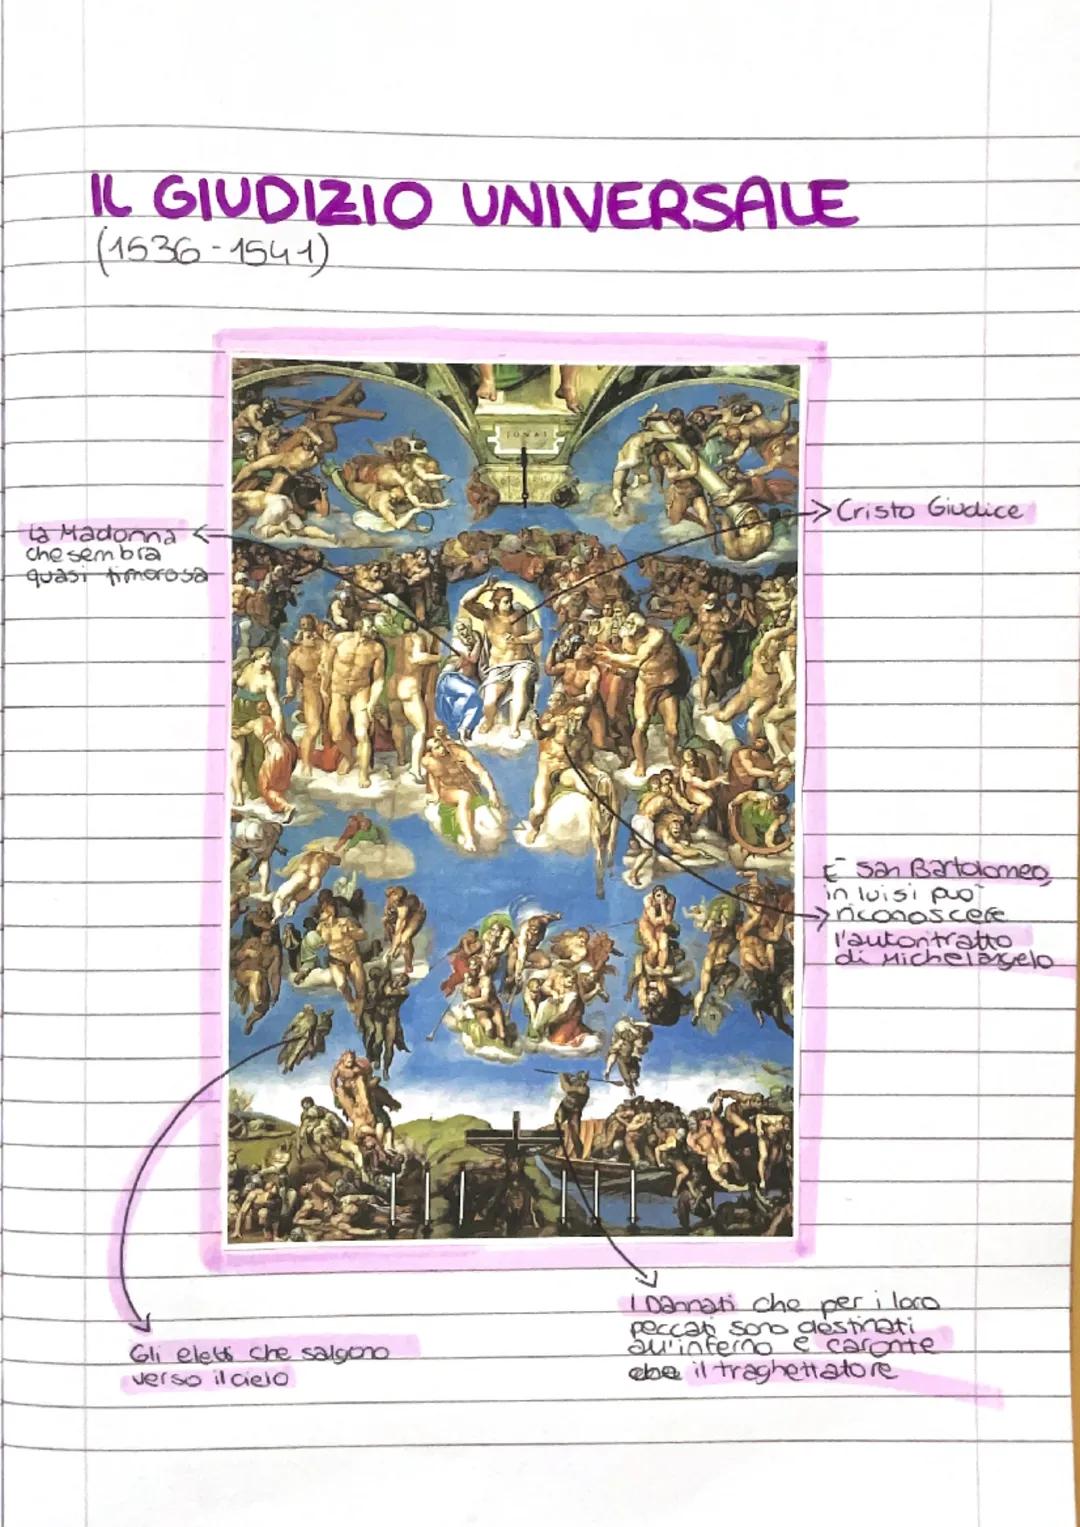 IL GIUDIZIO UNIVERSALE
(1536-1541)
IONAS
Cristo Giudice
La Madonna
che sembra
quasi timorosa
È San Bartolomeo,
in lui si può
riconoscere
l'autoritratto
di Michelangelo
I Dannati che per i loro
peccati sono destinati
all'inferno e caronte
il traghettatore
Gli eletti che salgono
verso il cielo